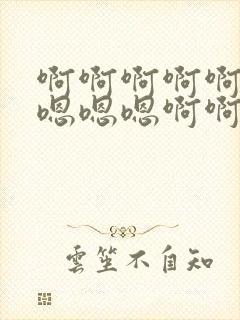 啊啊啊啊啊
嗯嗯嗯啊啊
雲笙不自知